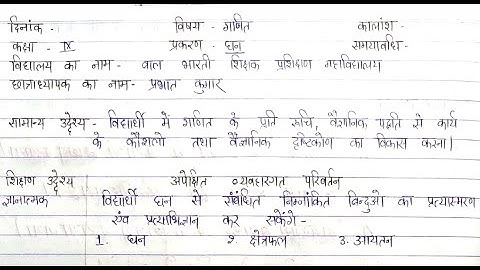 दिनांक - विषय - गणित कालांश -
कक्षा - IX प्रकरण - घन समयावधि -
विद्यालय का नाम - बाल भारती शिक्षक प्रशिक्षण महाविद्यालय
छात्राध्यापक का नाम - प्रभात कुमार
सामान्य उद्देश्य - विद्यार्थी में गणित के प्रति रूचि, वैज्ञानिक पद्धति से कार्य
के कौशलो तथा वैज्ञानिक दृष्टिकोण का विकास करना।
शिक्षण उद्देश्य अपेक्षित व्यवहारगत परिवर्तन
ज्ञानात्मक विद्यार्थी घन से संबंधित निम्नांकित बिन्दुओ का प्रत्यास्मरण
एंव प्रत्याभिज्ञान कर सकेंगे -
1. घन २. क्षेत्रफल 3. आयतन